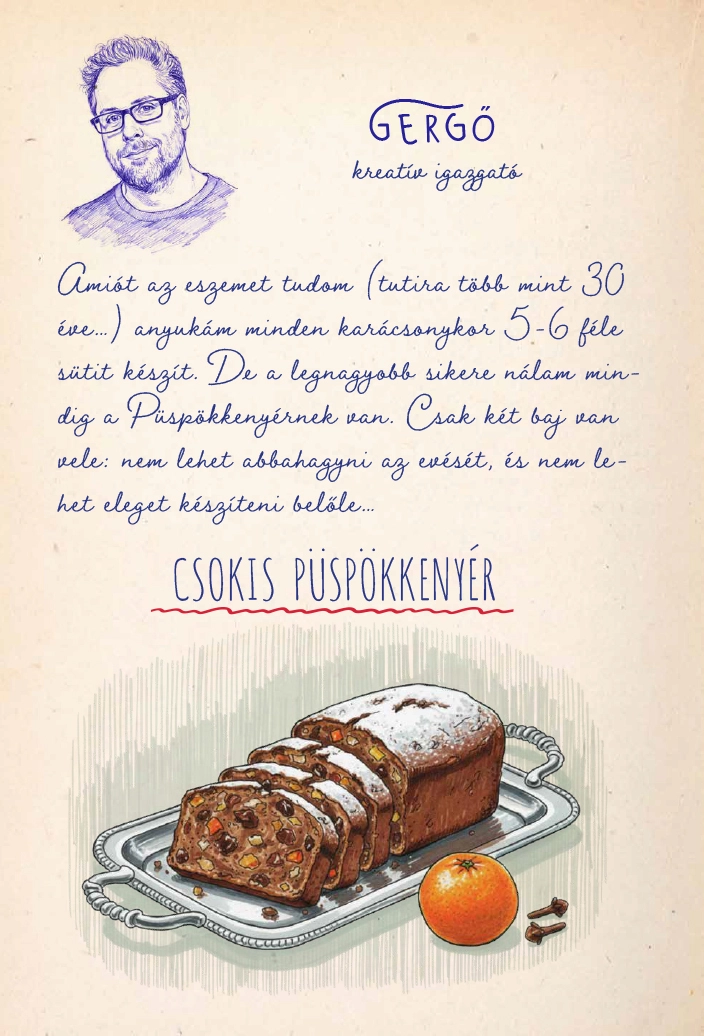 GERGŐ
kreatív igazgató
Amiót az eszemet tudom (tutira több mint 30
éve...) anyukám minden karácsonykor 5-6 féle
sütit készít. De a legnagyobb sikere nálam min-
dig a Püspökkenyérnek van. Csak két baj van
vele: nem lehet abbahagyni az evését, és nem le-
het eleget készíteni belőle...
CSOKIS PÜSPÖKKENYÉR